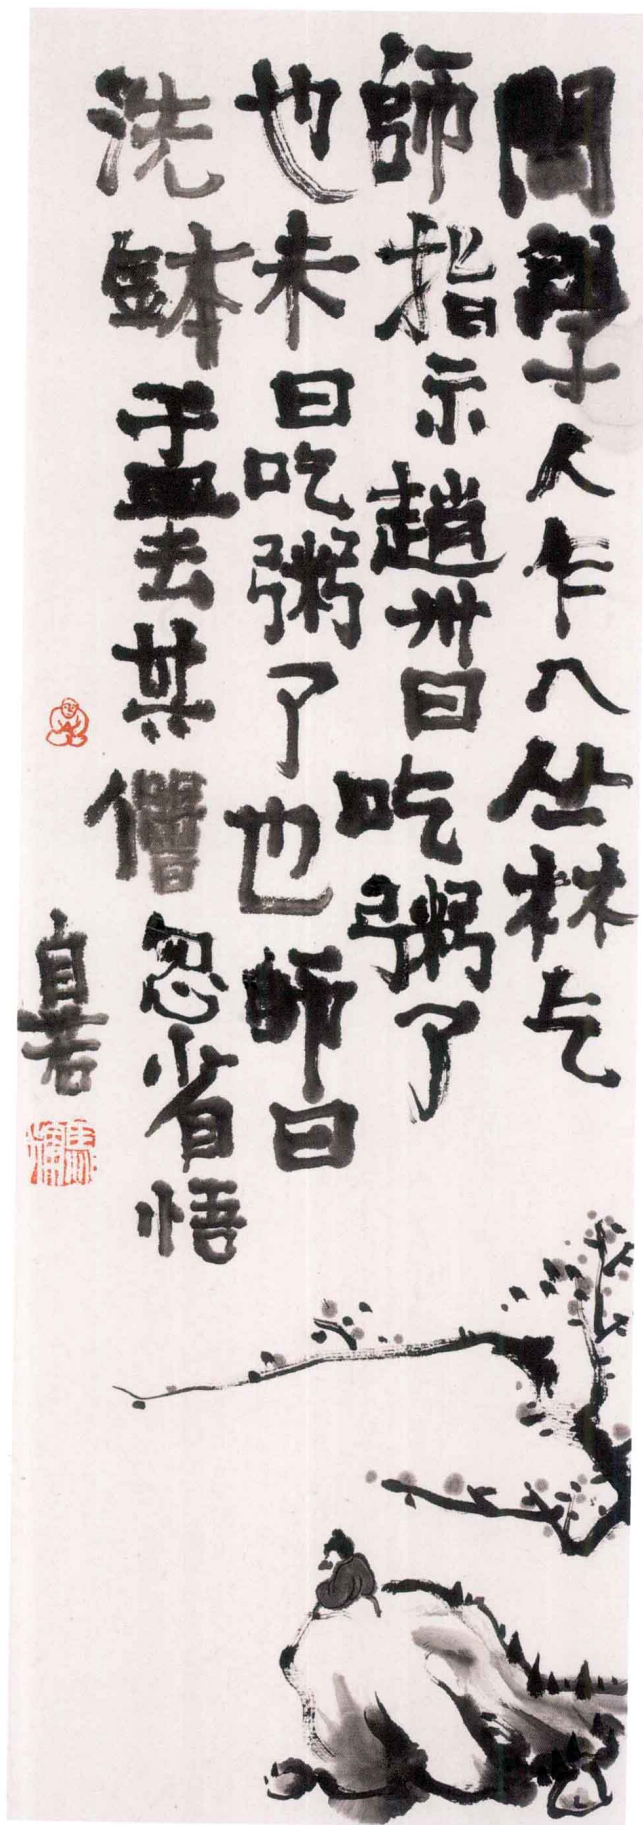 問學人乍入丛林乞
師指示趙州曰吃粥了
也未曰吃粥了也師曰
洗鉢盂去其僧忽省悟
自若